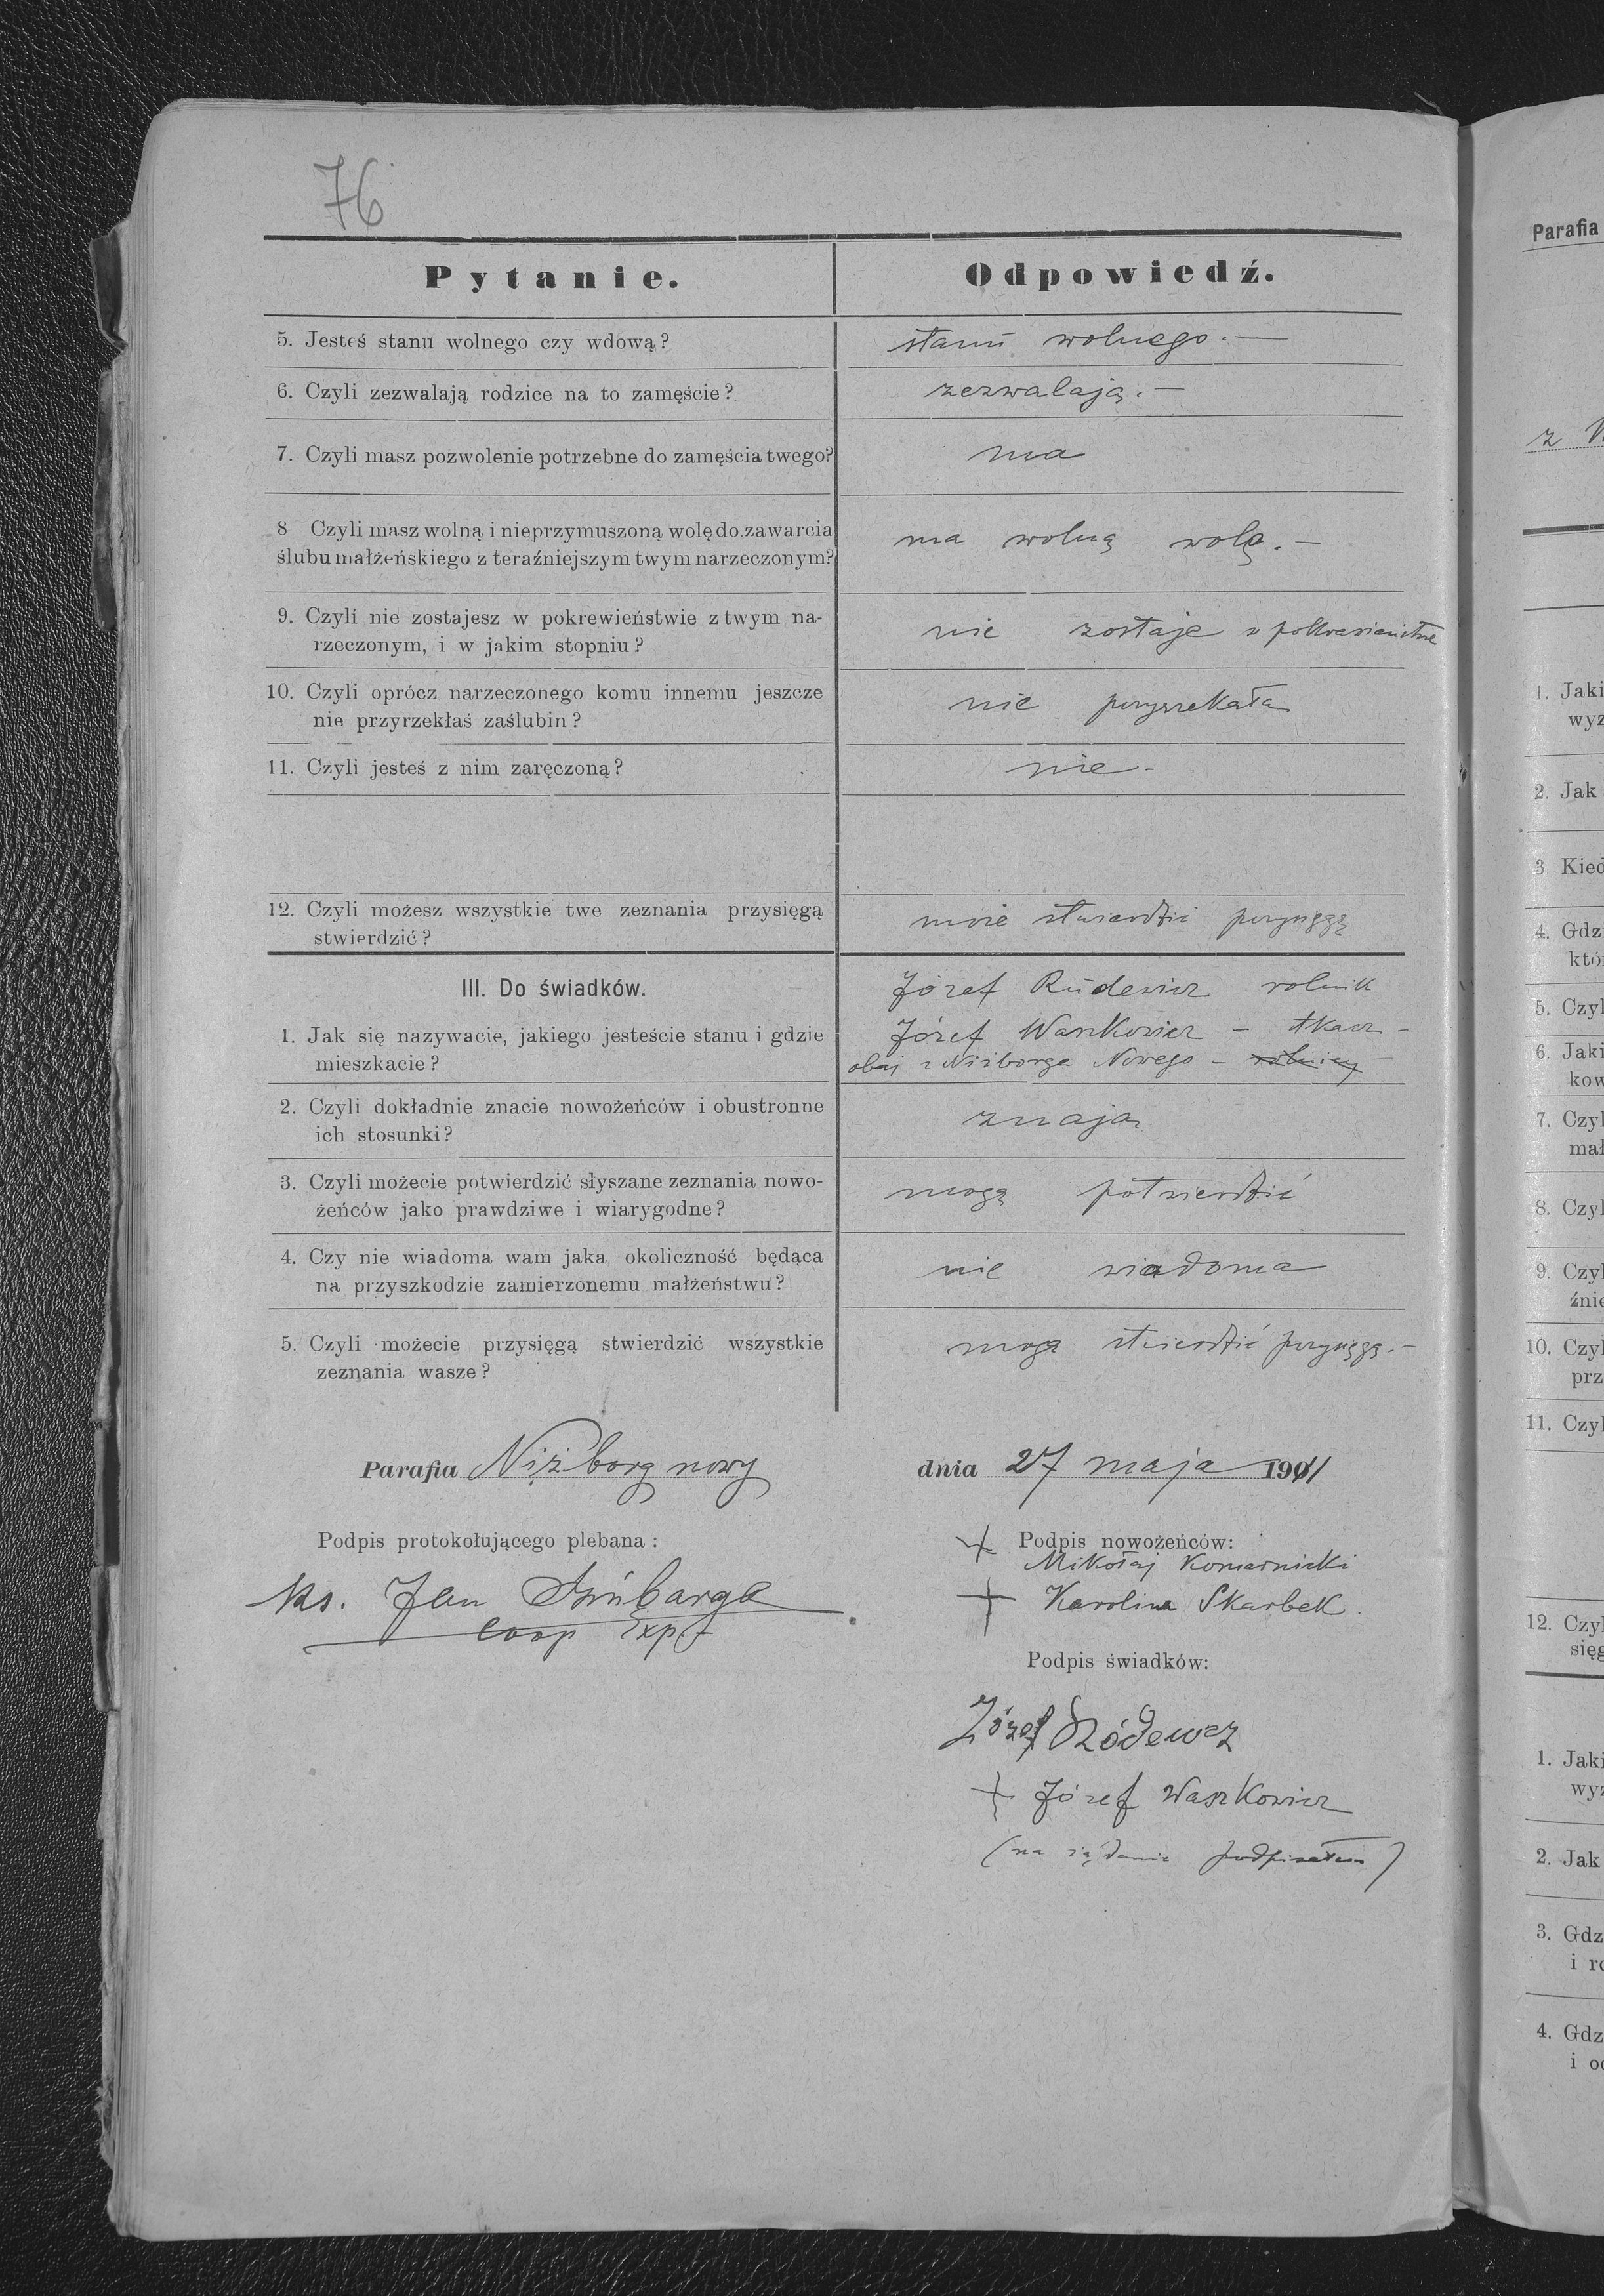 76
Pytanie.
Odpowiedź.
5. Jesteś stanu wolnego czy wdową?
stanu wolnego. —
6. Czyli zezwalają rodzice na to zamęście?
zezwalają. —
7. Czyli masz pozwolenie potrzebne do zamęścia twego?
ma
8 Czyli masz wolną i nieprzymuszoną wolę do zawarcia
ślubu małżeńskiego z teraźniejszym twym narzeczonym?
ma wolną wolę. —
9. Czyli nie zostajesz w pokrewieństwie z twym na-
rzeczonym, i w jakim stopniu?
nie zostaje w pokrewieństwie
10. Czyli oprócz narzeczonego komu innemu jeszcze
nie przyrzekłaś zaślubin?
nie przyrzekała
11. Czyli jesteś z nim zaręczoną?
nie -
12. Czyli możesz wszystkie twe zeznania przysięgą
stwierdzić?
może stwierdzić przysięgą
III. Do świadków.
1. Jak się nazywacie, jakiego jesteście stanu i gdzie
mieszkacie?
Józef Rudewicz rolnik
Józef Waszkowicz - tkacz -
obaj z Niżborga Nowego - rolnicy
2. Czyli dokładnie znacie nowożeńców i obustronne
ich stosunki?
znają
3. Czyli możecie potwierdzić słyszane zeznania nowo-
żeńców jako prawdziwe i wiarygodne?
mogą potwierdzić
4. Czy nie wiadoma wam jaka okoliczność będąca
na przyszkodzie zamierzonemu małżeństwu?
nie wiadoma
5. Czyli możecie przysięgą stwierdzić wszystkie
zeznania wasze?
mogą stwierdzić przysięgą. -
Parafia Niżborg nowy
dnia 27 maja 1911
Podpis protokołującego plebana:
ks. Jan
Coop Exp.
+ Podpis nowożeńców:
Mikołaj Komarnicki
+ Karolina Skarbek.
Podpis świadków:
Józef Ródewcz
+ Józef Waszkowicz
(na żądanie podpisałem)
Parafia
z
1. Jaki
wyz
2. Jak
3. Kied
4. Gdzi
któ
5. Czyl
6. Jaki
kow
7. Czyl
mał
8. Czyl
9. Czyl
źnie
10. Czyl
prz
11. Czyl
12. Czyl
sięg
1. Jaki
wyz
2. Jak
3. Gdz
i ro
4. Gdz
i oc